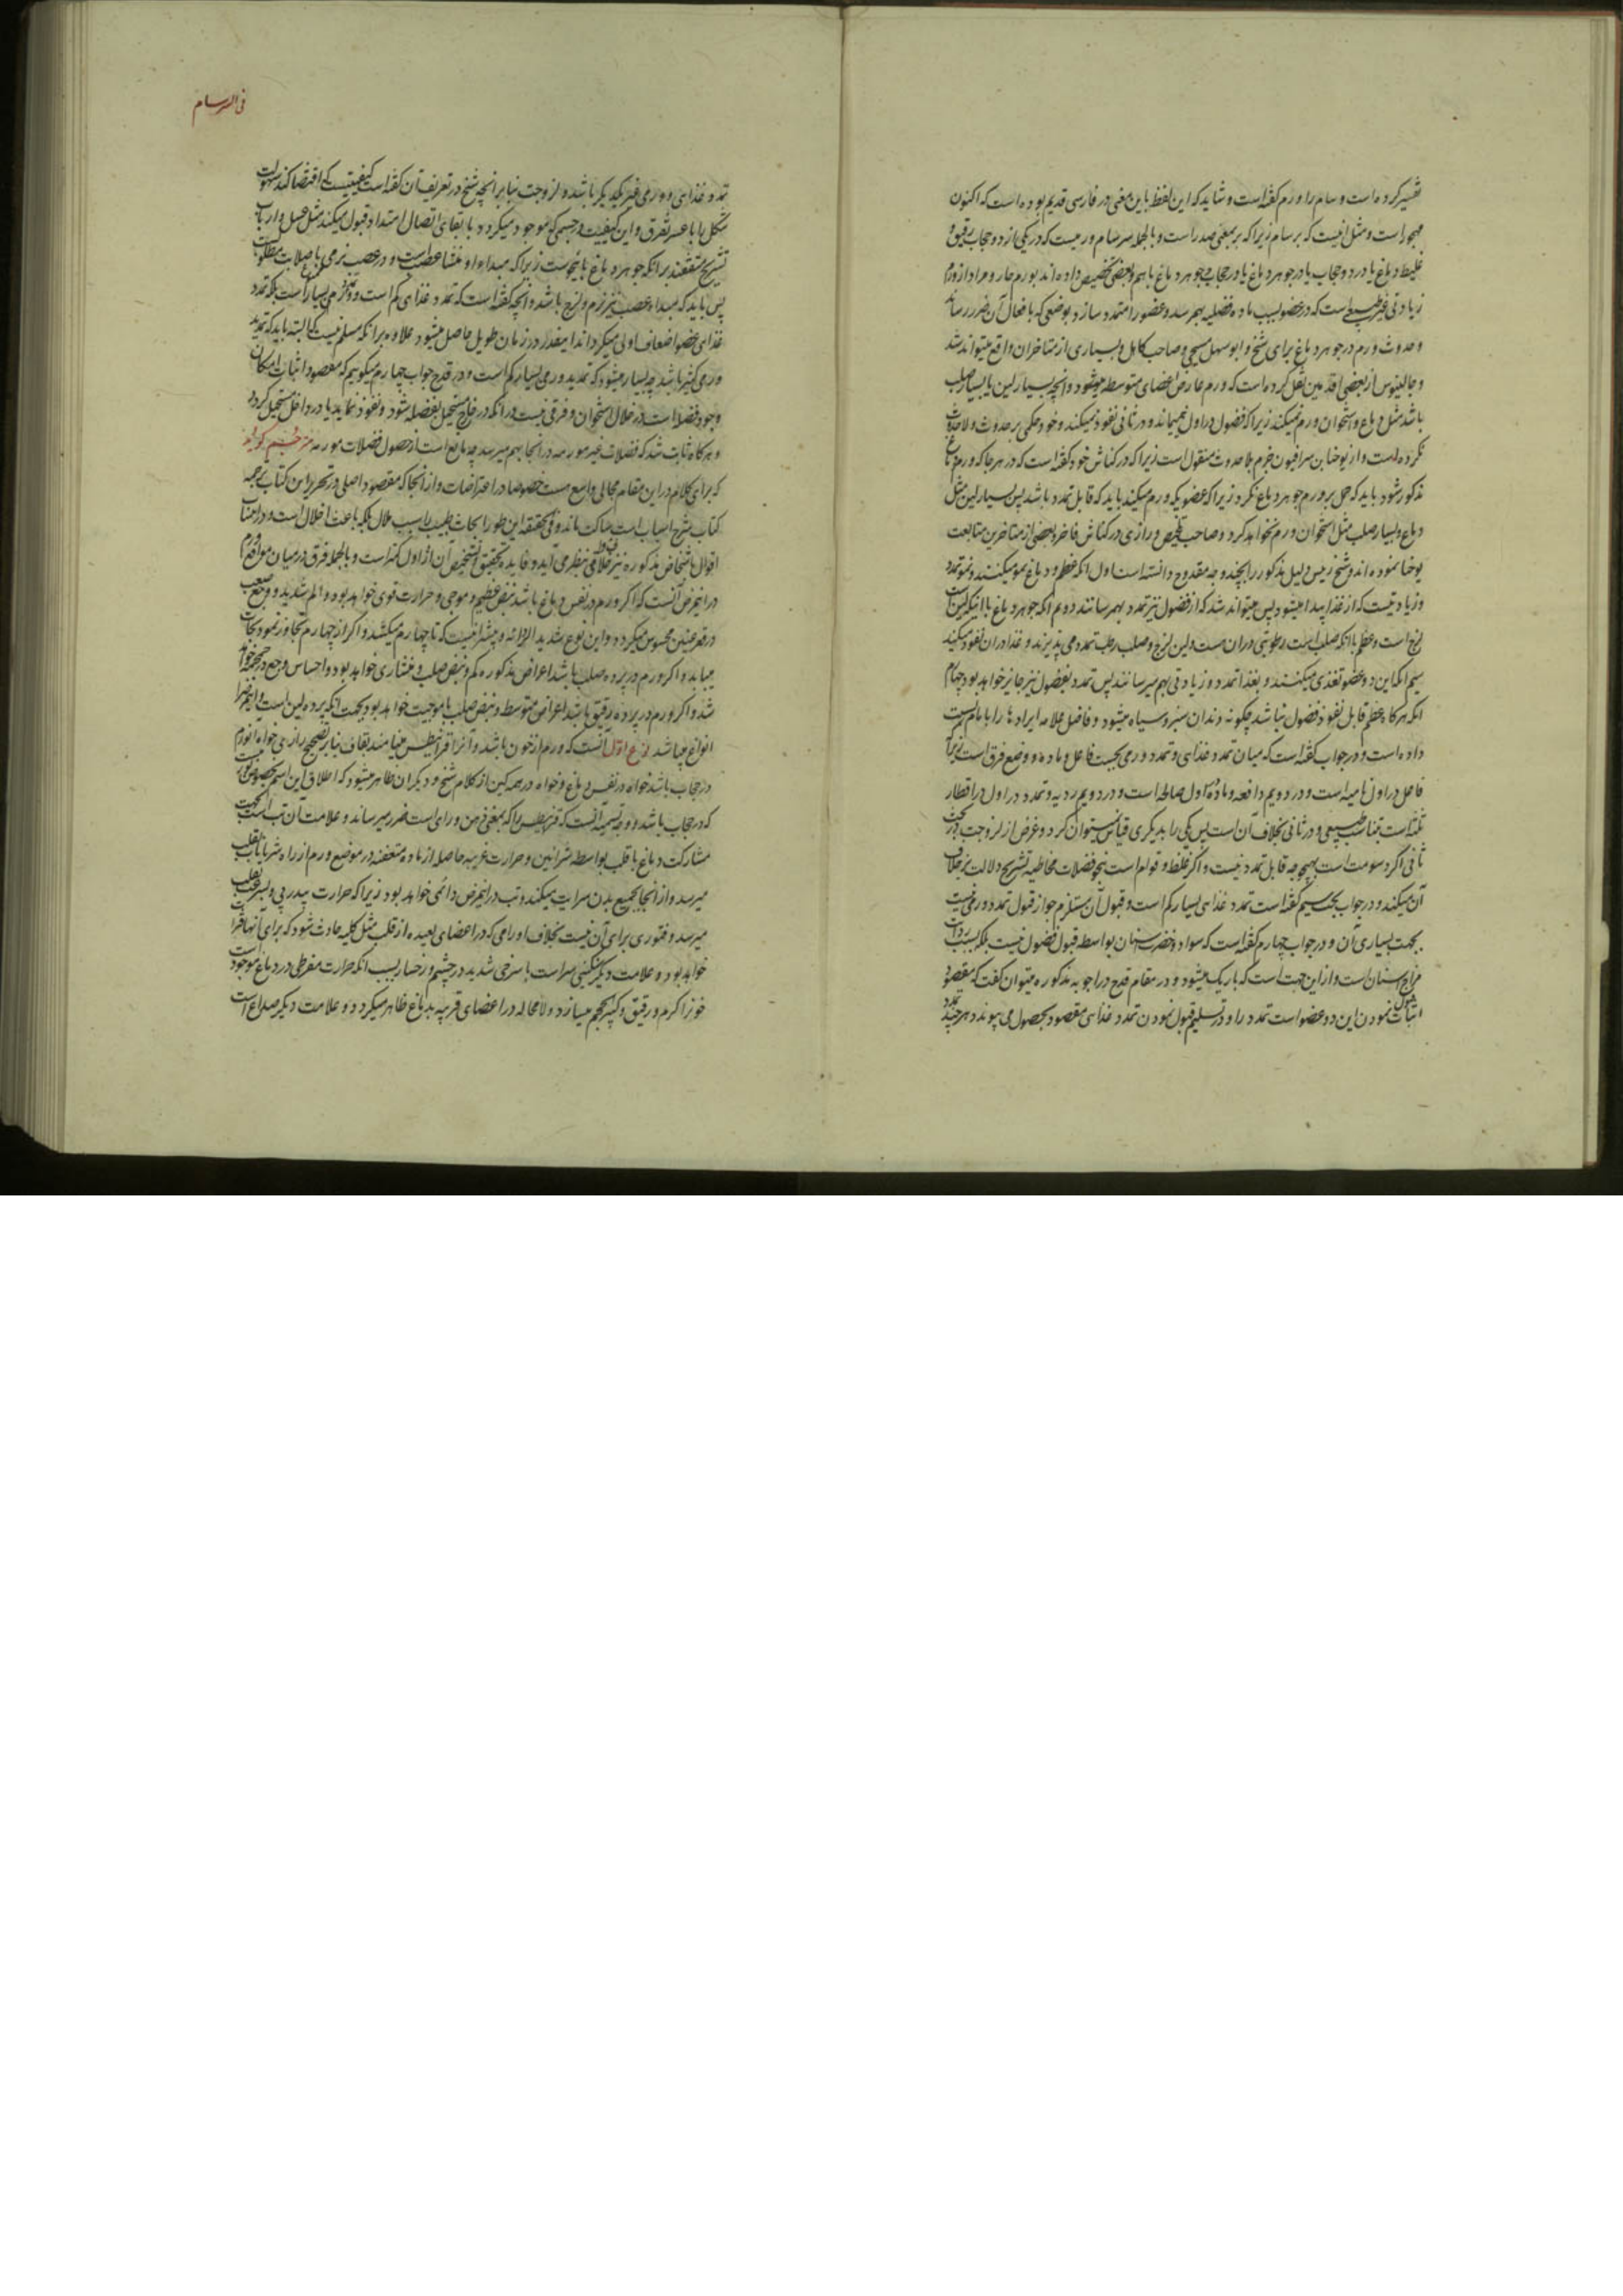 تفسیر کرده است و سام را ورم گفته است و شاید که این لفظ باین معنی در فارسی قدیم بوده است که اکنون
مهجور است و مثل انیست که برسام زیرا که بر بمعنی صدر است و بالجمله سرسام ورمیست که در یکی از دو حجاب رقیق و
غلیظ دماغ یا در دو حجاب یا در جوهر دماغ یا در حجاب و جوهر دماغ باهم و بعضی تخصیص داده اند بورم حار و مراد از ورم
زیادتی غیر طبیعی است که در عضو بسبب ماده فضلیه بهم رسد و عضو را متمدد سازد بوضعی که بافعال آن ضرر رساند
و حدوث ورم در جوهر دماغ برای شیخ و ابو سهل مسیحی و صاحب کامل و بسیاری از متاخران واقع میتواند شد
و جالینوس از بعضی اقدمین نقل کرده است که ورم عارض اعضای متوسطه میشود و انچه بسیار لین یا بسیار صلب
باشد مثل دماغ و استخوان ورم نمیکنند زیرا که فضول در اول نمیماند و در ثانی نفوذ نمیکند و خود حکمی بر حدوث و لا حدوث
نکرده است و از یوحنا بن سرافیون جزم بلا حدوث منقول است زیرا که در کناش خود گفته است که در هر جا که ورم دماغ
مذکور شود باید که حمل بر ورم جوهر دماغ نکرد زیرا که عضویکه ورم میکند باید که قابل تمدد باشد پس بسیار لین مثل
دماغ و بسیار صلب مثل استخوان ورم نخواهد کرد و صاحب تلخیص و رازی در کناش فاخر و بعضی از متاخرین متابعت
یوحنا نموده اند و شیخ رئیس دلیل مذکور را بچند وجه مقدوح دانسته است اول انکه عظم و دماغ نمو میکنند و نمو تمدد
و زیادتیست که از غذا پیدا میشود پس میتواند شد که از فضول نیز تمدد بهم رسانند دویم انکه جوهر دماغ با انکه لین است
لزج است و عظم با انکه صلب است رطوبتی در ان هست و لین لزج و صلب رطب تمدد می پذیرند و غذا در ان نفوذ میکند
سیم انکه این دو عضو تغذی میکنند و بغذا تمدد و زیادتی بهم میرسانند پس تمدد بفضول نیز جایز خواهد بود چهارم
انکه هرگاه عظم قابل نفوذ فضول نباشد چگونه دندان سبز و سیاه میشود و فاضل علامه ایرادها را
داده است و در جواب گفته است که میان تمدد غذای و تمدد ورمی بحسب فاعل و ماده و وضع فرق است زیرا که
فاعل در اول نامیه است و در دویم دافعه و ماده اول صالحه است و در دویم ردیه و تمدد در اول در اقطار
ثلثه است بتناسب طبیعی و در ثانی بخلاف آن است پس یکی را بدیگری قیاس نمیتوان کرد و غرض از لزوجت در بحث
ثانی اگر دسومت است بهیچوجه قابل تمدد نیست و اگر غلظ و قوام است نهج فضلات مخاطیه تشریح دلالت بر خلاف
آن میکند و در جواب بحث سیم گفته است تمدد غذای بسیار کم است و قبول آن مستلزم جواز قبول تمدد ورمی نیست
بجهت بسیاری آن و در جواب چهارم گفته است که سواد و خضرت اسنان بواسطه قبول فضول نیست بلکه بسبب برودت
مزاج اسنان است و از این جهت است که باریک میشود و در مقام قدح در اجوبه مذکوره میتوان گفت که مقصود
اثبات قبول نمودن این دو عضو است تمدد را و در تسلیم قبول نمودن تمدد غذای مقصود بحصول می پیوندد هر چند
فی السرسام
تمدد غذای و ورمی غیر یکدیگر باشد و لزوجت بنا بر انچه شیخ در تعریف آن گفته است کیفیتیست که اقتضا کند سهولت
تشکل را با عسر تفرق و این کیفیت در جسمیکه موجود میگردد با بقای اتصال امتداد قبول میکند مثل عسل و ارباب
تشریح متفقند بر انکه جوهر دماغ باینجاست زیرا که مبداء او منشا عصب است و در عصب نرمی با صلابت مطلوب است
پس باید که مبداء عصب نیز نرم و لزج باشد و انچه گفته است که تمدد غذای کم است و تمدد ورمی بسیار است بلکه تمدد
غذای عضو اضعاف اولی میگرداند اینقدر در زمان طویل حاصل میشود علاوه بر انکه مسلم نیست که البته باید که تمدید
ورمی کثیر باشد چه بسیار میشود که تمدید ورمی بسیار کم است و در قدح جواب چهارم میگوییم که مقصود اثبات امکان
وجود فضلا است در خلال استخوان و فرقی نیست در انکه در خارج مستحیل بفضله شود و نفوذ نماید یا در داخل مستحیل گردد
و هرگاه ثابت شد که فضلات غیر مورمه در انجا بهم میرسد چه مانع است از حصول فضلات مورمه مترجم گوید
که برای کلام در این مقام مجالی واسع هست خصوصا در اعتراضات و از انجا که مقصود اصلی در تحریر این کتاب ترجمه
کتاب شرح اسباب است ساکت ماند و فی الحقیقه این طور ابحاث طبیب را سبب ملال بلکه باعث اخلال است و در انتساب
اقوال باشخاص مذکوره نیز خلافی بنظر می آید و فایده تحقیق تشخیص آن از اول کمتر است و بالجمله فرق در میان مواقع ورم
در اینمرض آنست که اگر ورم در نفس دماغ باشد نبض عظیم و موجی و حرارت قوی خواهد بود و الم شدید و وجع صعب
در قعر عینین محسوس میگردد و این نوع شدید الرداءة و بیشتر انیست که تا چهارم میکشد و اگر از چهارم تجاوز نمود نجات
می یابد و اگر ورم در پرده صلب باشد اعراض مذکوره کم و نبض صلب و منشاری خواهد بود و احساس وجع در جمجمه خواهد
شد و اگر ورم در پرده رقیق باشد اعراض متوسط و نبض صلب با موجیت خواهد بود بجهت انکه پرده لین است و اینمرض را
انواع میباشد نوع اول آنست که ورم از خون باشد و آنرا قرانیطس مینامند بقاف بنا بر تصحیح رازی خواه انورم
در حجاب باشد خواه در نفس دماغ و خواه در هر دو لیکن از کلام شیخ و دیگران ظاهر میشود که اطلاق این اسم مخصوص ورمیست
که در حجاب باشد و وجه تسمیه آنست که قرانیطس را که بمعنی ذهن و رای است ضرر میرساند و علامت آن تب است بجهت
مشارکت دماغ با قلب بواسطه شرائین و حرارت غریبه حاصله از ماده متعفنه در موضع ورم از راه شریانات بقلب
میرسد و از آنجا بجمیع بدن سرایت میکند و تب در اینمرض دائمی خواهد بود زیرا که حرارت پیدرپی و بسرعت بقلب
میرسد و فتوری برای آن نیست بخلاف اورامی که در اعضای بعیده از قلب مثل کلیه حادث شود که برای آنها فترات
خواهد بود و علامت دیگر سنگینی سر است با سرخی شدید در چشم و رخسار بسبب انکه حرارت مفرطی در دماغ موجود است
خون را گرم و رقیق و کثیر الحجم میسازد و لامحاله در اعضای قریبه بدماغ ظاهر میگردد و علامت دیگر صداع است